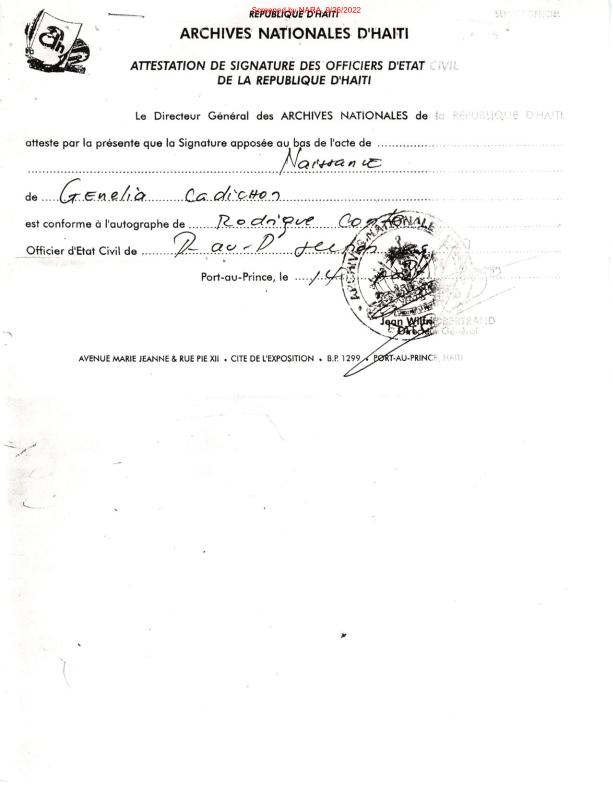 Screened by NARA, 9/26/2022
REPUBLIQUE D'HAITI
SERVICE OFFICIEL
ARCHIVES NATIONALES D'HAITI
ATTESTATION DE SIGNATURE DES OFFICIERS D'ETAT CIVIL
DE LA REPUBLIQUE D'HAITI
Le Directeur Général des ARCHIVES NATIONALES de la REPUBLIQUE D'HAITI
atteste par la présente que la Signature apposée au bas de l'acte de
Naissance
de Genelia Cadichon
est conforme à l'autographe de Rodrigue
Officier d'Etat Civil de
Port-au-Prince, le 14
ARCHIVES NATIONALE
Jean Wilfrid BERTRAND
Directeur Général
AVENUE MARIE JEANNE & RUE PIE XII • CITE DE L'EXPOSITION • B.P. 1299 • PORT-AU-PRINCE, HAITI